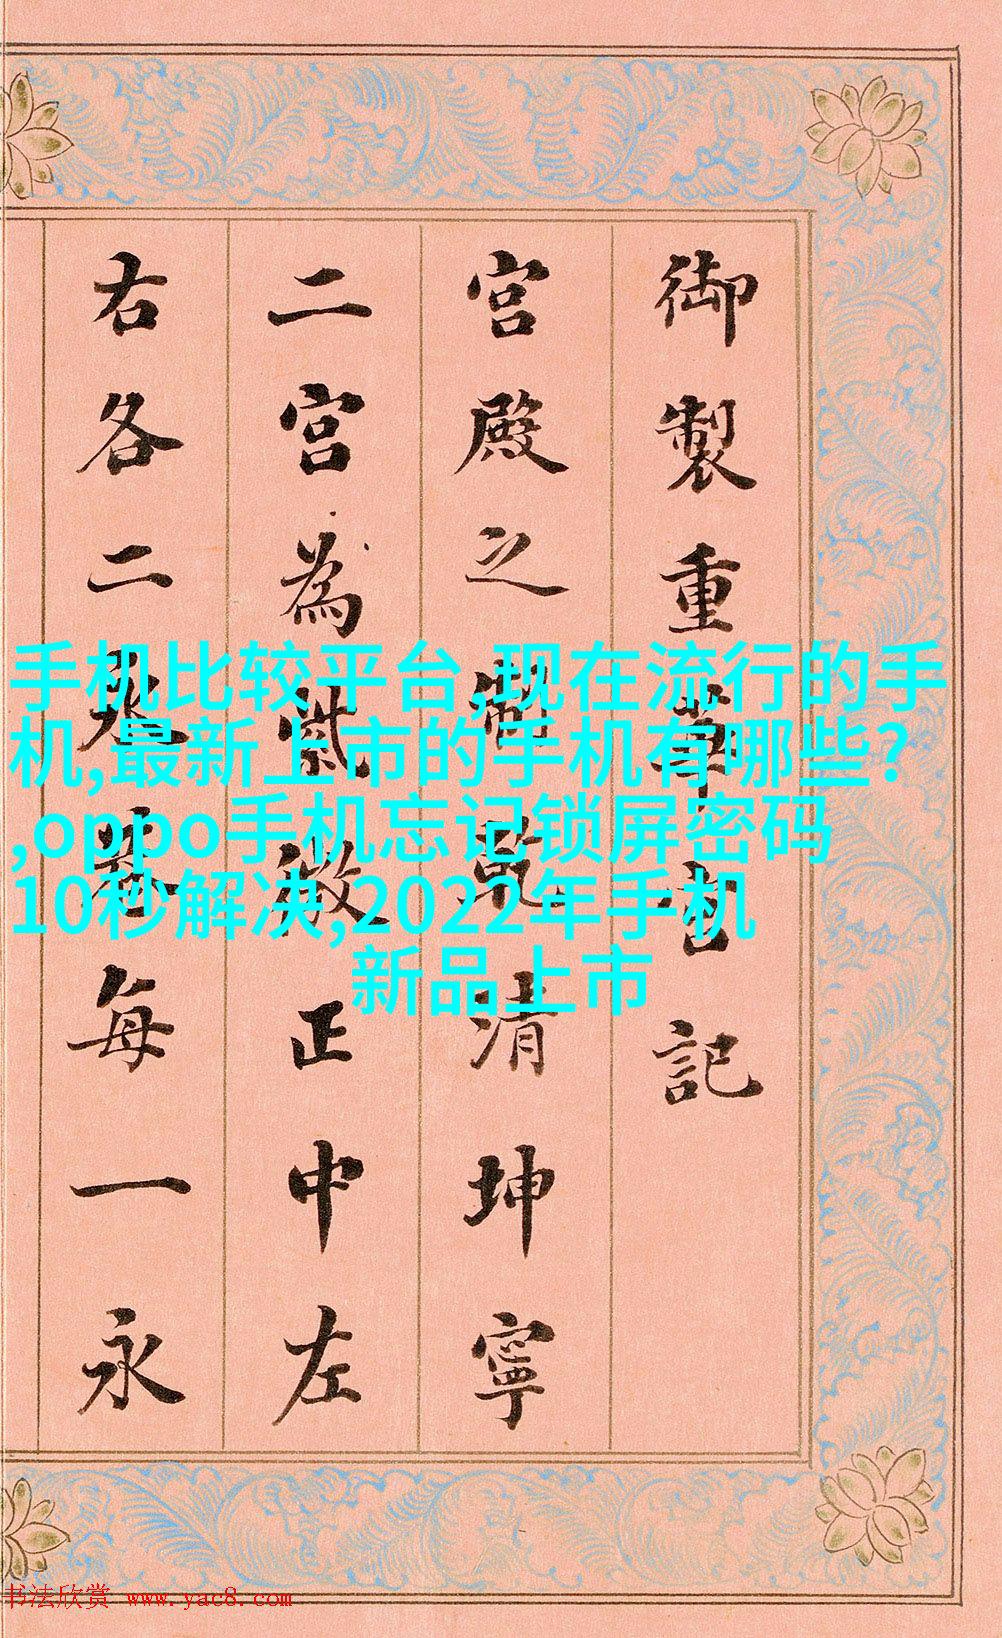 御製重華宮記
宮殿之制乾清坤寧
二宮為紫微正中左
右各二巷每一永
手机比较平台,现在流行的手
机,最新上市的手机有哪些?
,oppo手机忘记锁屏密码
10秒解决,2022年手机
新品上市
书法欣赏 www.yac8.com